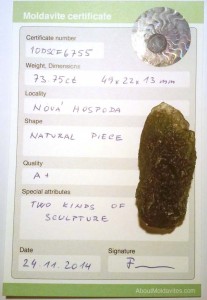 Moldavite certificate
Certificate number
10DSCF6755
Weight, Dimensions
73.75ct 49x22x13 mm
Locality
NOVÁ HOSPODA
Shape
NATURAL PIECE
Quality
A+
Special attributes
TWO KINDS OF
SCULPTURE
Date
Signature
24.11.2014
AboutMoldavites.com